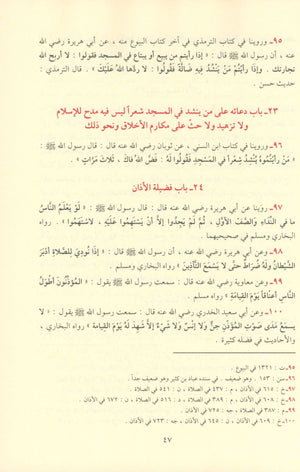 ٩٥- وروينا في كتاب الترمذي في آخر كتاب البيوع منه ، عن أبي هريرة رضي الله
عنه ، أن رسول الله ﷺ قال : « إذا رأيتم من يبيع أو يبتاع في المسجد فقولوا : لا أربح الله
تجارتك . وإذا رأيتم من ينشد فيه ضالة فقولوا : لا ردها الله عليك » . قال الترمذي :
حديث حسن .
٢٣- باب دعائه على من ينشد في المسجد شعراً ليس فيه مدح للإسلام
ولا تزهيد ولا حث على مكارم الأخلاق ونحو ذلك
٩٦- وروينا في كتاب ابن السني ، عن ثوبان رضي الله عنه قال : قال رسول الله ﷺ :
« من رأيتموه ينشد شعراً في المسجد فقولوا له : فض الله فاك ، ثلاث مرات » .
٢٤- باب فضيلة الأذان
٩٧- روينا عن أبي هريرة رضي الله عنه قال : قال رسول الله ﷺ : « لو يعلم الناس
ما في النداء والصف الأول ، ثم لم يجدوا إلا أن يستهموا عليه ، لاستهموا » . رواه
البخاري ومسلم في صحيحيهما .
٩٨- وعن أبي هريرة رضي الله عنه ، أن رسول الله ﷺ قال : « إذا نودي للصلاة أدبر
الشيطان وله ضراط حتى لا يسمع التأذين » رواه البخاري ومسلم .
٩٩- وعن معاوية رضي الله عنه قال : سمعت رسول الله ﷺ يقول : « المؤذنون أطول
الناس أعناقاً يوم القيامة » رواه مسلم .
١٠٠- وعن أبي سعيد الخدري رضي الله عنه قال : سمعت رسول الله ﷺ يقول : « لا
يسمع مدى صوت المؤذن جن ولا إنس ولا شيء إلا شهد له يوم القيامة » رواه البخاري ،
والأحاديث في فضله كثيرة .
٩٥- ت : ١٣٢١ في البيوع .
٩٦- سن : ١٥٣ . وهو ضعيف . في سنده عباد بن كثير وهو ضعيف جداً .
٩٧- خ : ٦١٥ في الأذان ، م : ٤٣٧ في الصلاة ، ن : ٥٤١ في الصلاة .
٩٨- خ : ٦٠٨ في الأذان ، م : ٣٨٩ في الصلاة ، د : ٥١٦ ، ن : ٦٧٢ في الأذان .
٩٩- م : ٣٨٧ في الصلاة ، جه : ٧٢٥ في الأذان .
١٠٠- خ : ٦٠٩ في الأذان ، ن : ٦٤٥ في الأذان ، جه : ٧٢٣ في الأذان .
٤٧